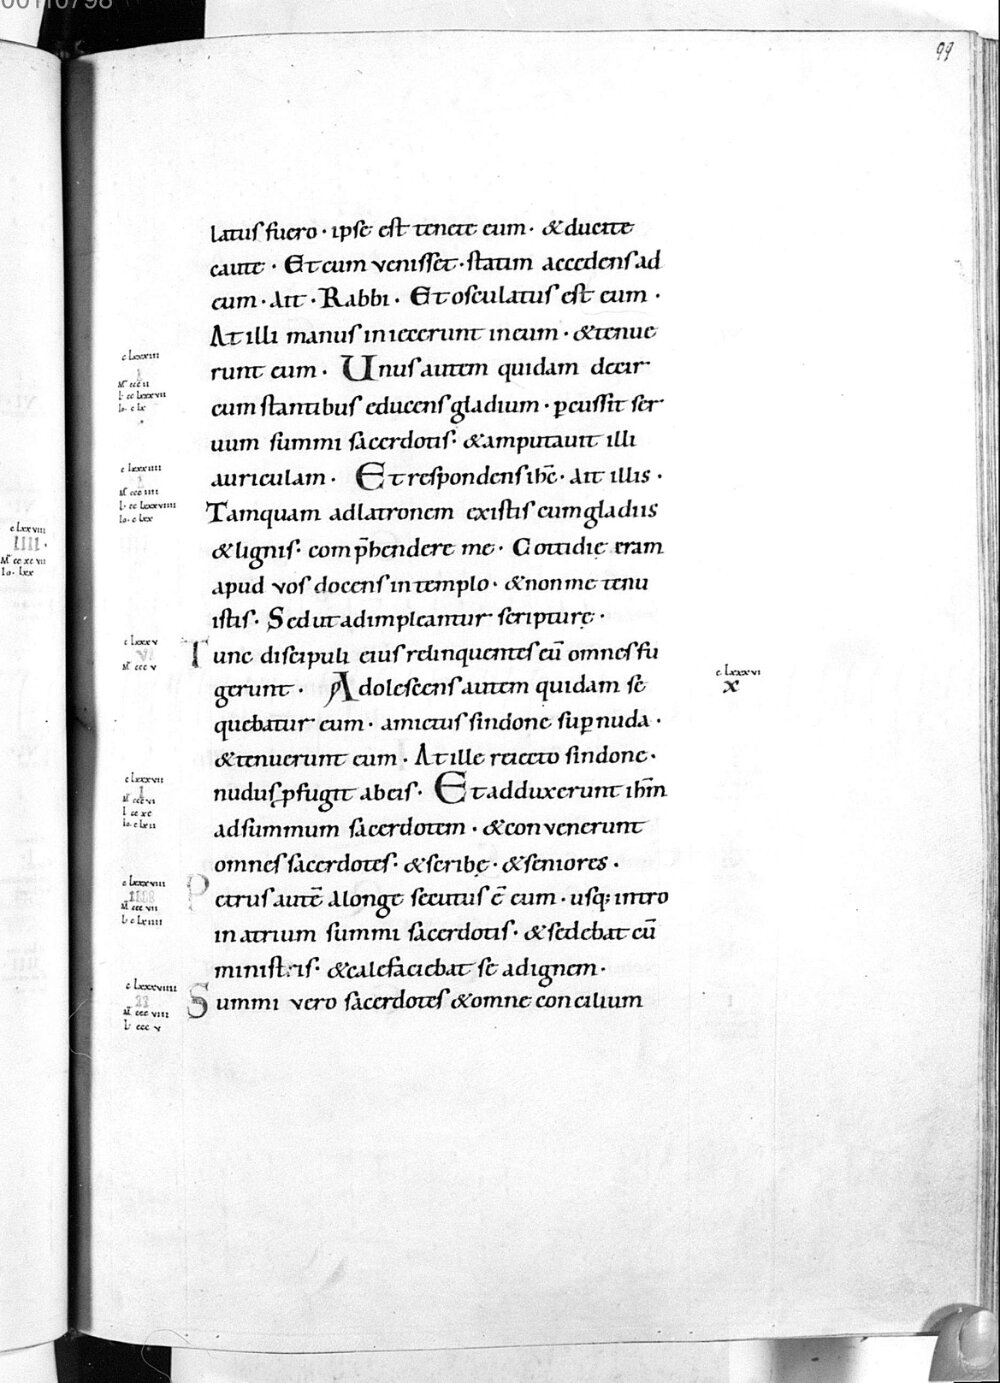 00110798
99
latus fuero · ipse est tenete eum · & ducite
caute · Et cum venisset · statim accedens ad
eum · Ait · Rabbi · Et osculatus est eum ·
At illi manus iniecerunt in eum · & tenue
runt eum · Unus autem quidam decir
cumstantibus educens gladium · ꝑcussit ser
uum summi sacerdotis · & amputauit illi
auriculam · Et respondens ihc̄ · Ait illis ·
Tamquam ad latronem existis cum gladiis
& lignis · comp̄hendere me · Cottidie eram
apud vos docens in templo · & non me tenu
istis · Sed ut adimpleantur scripturę ·
Tunc discipuli eius relinquentes eū omnes fu
gerunt · Adolescens autem quidam se
quebatur eum · amictus sindone suꝑ nuda ·
& tenuerunt eum · At ille reiecto sindone ·
nudus ꝓfugit ab eis · Et adduxerunt ihm̄
ad summum sacerdotem · & convenerunt
omnes sacerdotes · & scribę · & seniores ·
Petrus autē Alonge secutus ē eum · usq; intro
in atrium summi sacerdotis · & sedebat cū
ministris · & calefaciebat se ad ignem ·
Summi vero sacerdotes & omne concilium
c lxxxiii
I
M ccc ii
L cc lxxxvii
Io c lx
c lxxxiiii
I
M ccc iiii
L cc lxxxviiii
Io c lxx
c lxxxv
VI
M ccc v
c lxxxvi
X
c lxxxvii
I
M ccc vi
L cc xc
c lxxxviii
IIII
M ccc vii
c lxxxviiii
II
M ccc viii
L ccc v
c lxxviii
IIII ·
M cc xc vii
Io · lxx